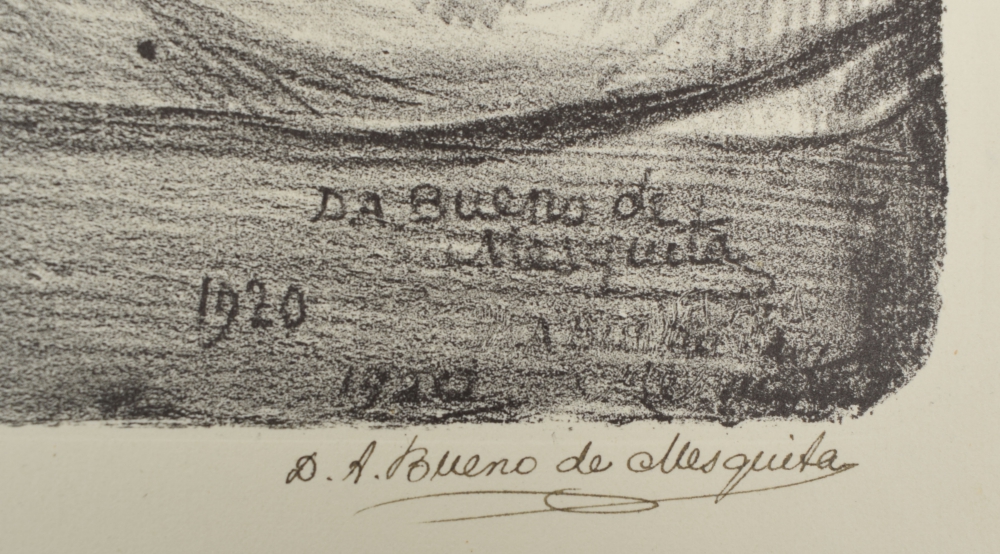 DA Bueno de
Mesquita
1920
1920
D. A. Bueno de Mesquita